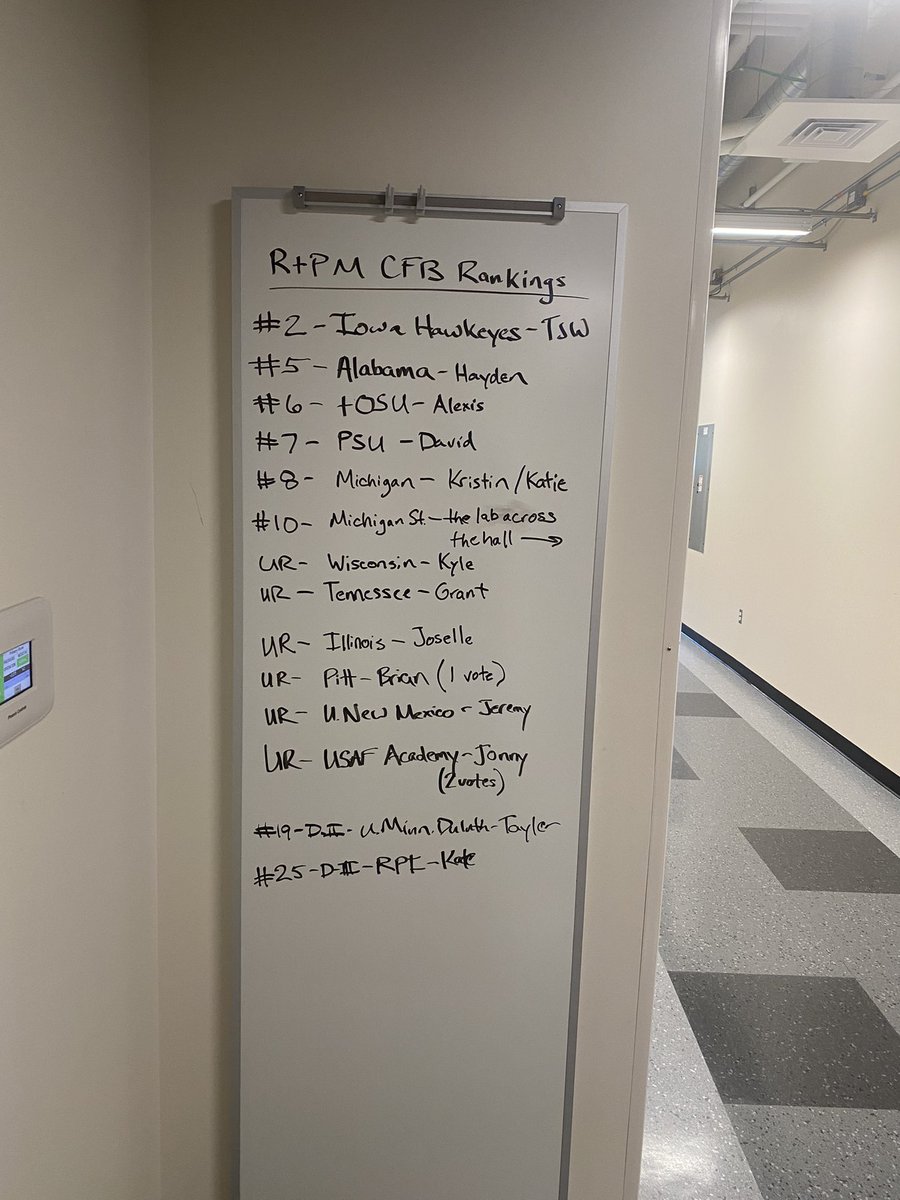 R+PM CFB Rankings
#2 - Iowa Hawkeyes - TSW
#5 - Alabama - Hayden
#6 - tOSU - Alexis
#7 - PSU - David
#8 - Michigan - Kristin/Katie
#10 - Michigan St. - the lab across
the hall →
UR - Wisconsin - Kyle
UR - Tennessee - Grant
UR - Illinois - Joselle
UR - Pitt - Brian (1 vote)
UR - U. New Mexico - Jeremy
UR - USAF Academy - Jonny
(2 votes)
#19 - D.II - U. Minn. Duluth - Tayler
#25 - D-III - RPI - Kate